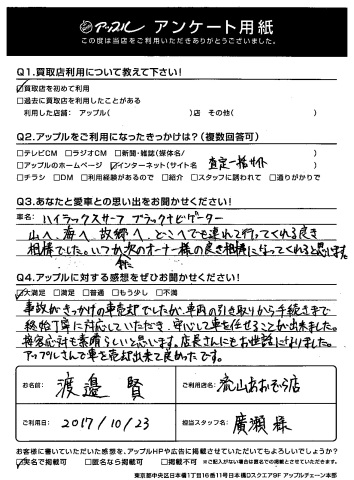 アップル アンケート用紙
この度は当店をご利用いただきありがとうございました。
Q1.買取店利用について教えて下さい!
☑買取店を初めて利用
□過去に買取店を利用したことがある
利用した店舗: アップル( )店 その他( )
Q2.アップルをご利用になったきっかけは?(複数回答可)
□テレビCM □ラジオCM □新聞・雑誌(媒体名/ )
□アップルのホームページ ☑インターネット(サイト名 査定一括サイト )
□チラシ □DM □利用経験があるので □紹介 □スタッフに誘われて □通りがかりで
Q3.あなたと愛車との思い出をお聞かせください!
車名: ハイラックスサーフ ブラックナビゲーター
山へ、海へ、故郷へ、どこへでも連れて行ってくれる良き
相棒でした。いつか次のオーナー様の良き相棒になってくれると思います。
Q4.アップルに対する感想をぜひお聞かせください!
☑大満足 □満足 □普通 □もう少し □不満
事故がきっかけの車売却でしたが、車両の引き取りから手続きまで
終始丁寧に対応していただき、安心して車を任せることが出来ました。
応対も素晴らしいと思います。店長さんにもお世話になりました。
アップルさんで車を売却出来て良かったです。
お名前: 渡邉 賢
ご利用店名: 流山おおたかの森店
ご利用日: 2017/10/23
担当スタッフ名: 廣瀬 様
お客様に書いていただいた感想を、アップルHPや広告に掲載させていただいてもよろしいでしょうか?
☑実名で掲載可 □匿名なら掲載可 □掲載不可 ※ご記入がない場合は匿名での掲載とさせていただきます。
東京都中央区日本橋1丁目16番11号日本橋Dスクエア9F アップルチェーン本部